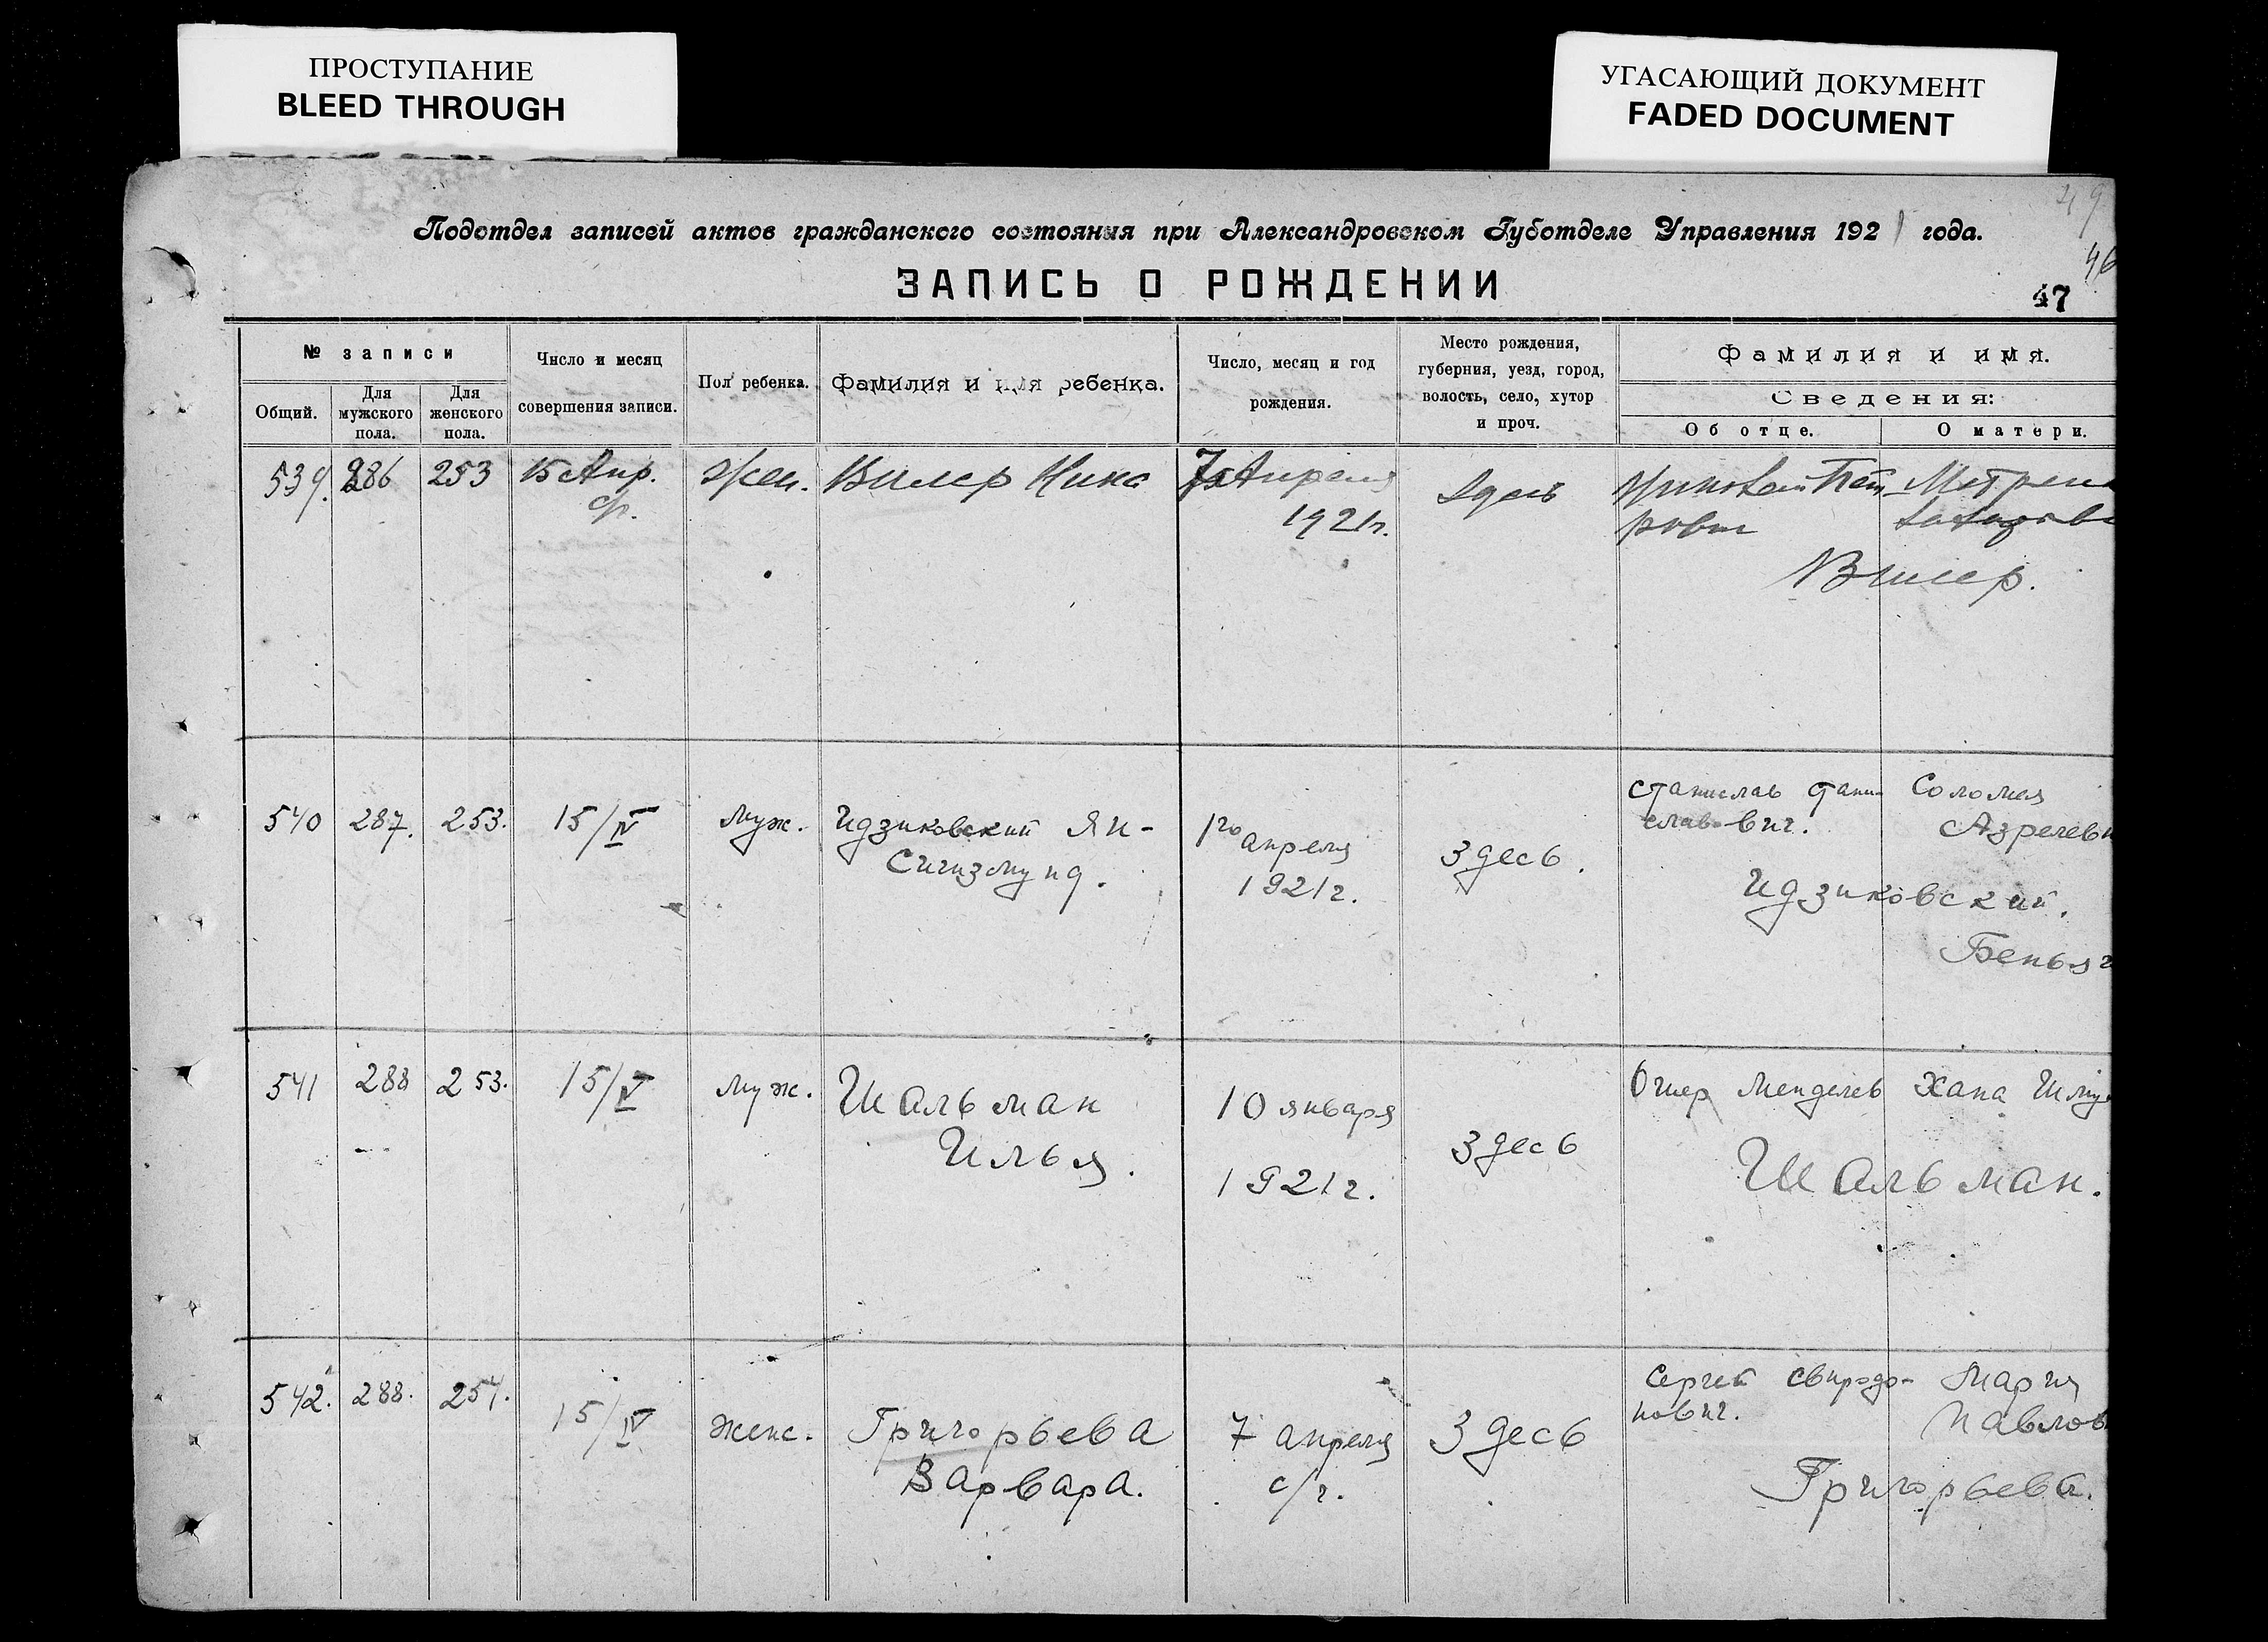 ПРОСТУПАНИЕ
BLEED THROUGH
УГАСАЮЩИЙ ДОКУМЕНТ
FADED DOCUMENT
49
46
Подотдел записей актов гражданского состояния при Александровском Губотделе Управления 1921 года.
ЗАПИСЬ О РОЖДЕНИИ
47
№ записи
Общий.
Для мужского пола.
Для женского пола.
Число и месяц совершения записи.
Пол ребенка.
Фамилия и имя ребенка.
Число, месяц и год рождения.
Место рождения, губерния, уезд, город, волость, село, хутор и проч.
Фамилия и имя.
Сведения:
Об отце.
О матери.
539. 286 253 15 Апр. Жен. Вилер Нина 7 Апреля
1921г.
Здесь
Вилер.
540 287. 253. 15/IV муж. Идзиковский Ян-
Сигизмунд.
1го апреля
1921г.
Здесь.
Станислав Стани-
славович.
Соломея
Азрелев
Идзиковский.
541 288 253. 15/IV муж. Шальман
Илья.
10 января
1921г.
Здесь
Ошер Менделев Хана Шму
Шальман.
542. 288. 254. 15/IV женс. Григорьева
Варвара.
7 апреля
с/г.
Здесь
Сергей Свиридо-
нович.
Мария
Павлов
Григорьева.